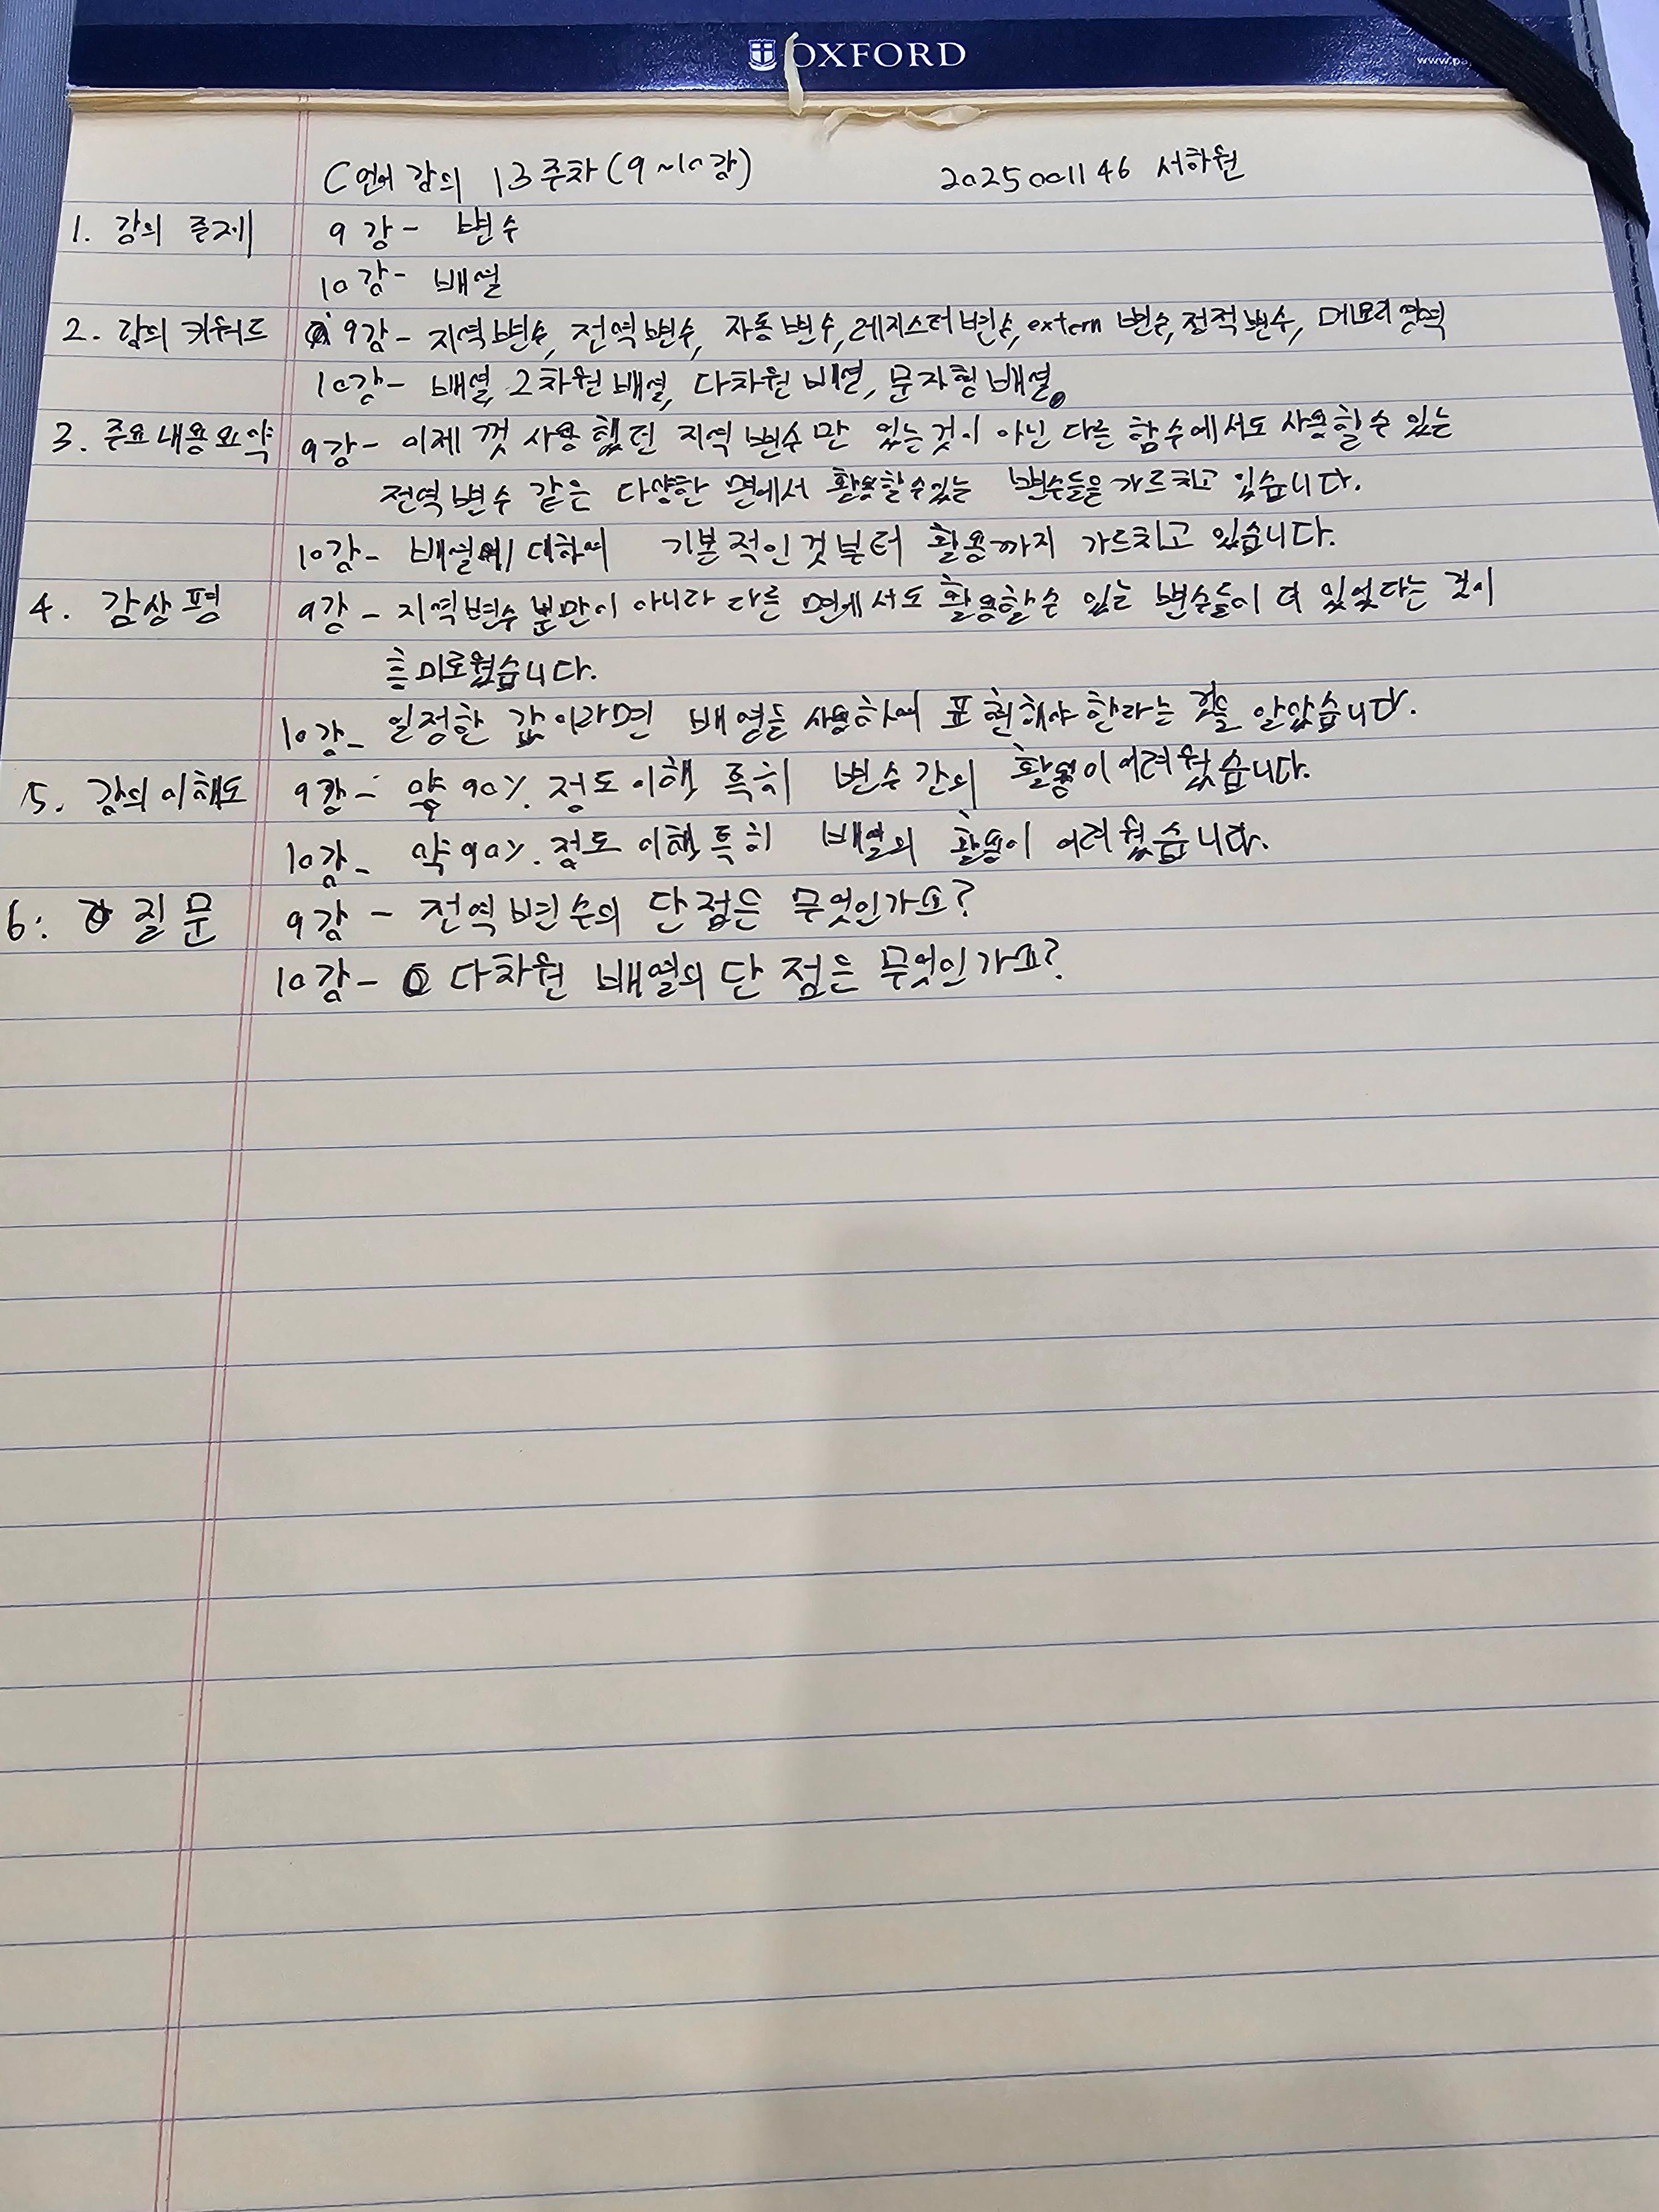 OXFORD
www.pa
C언어 강의 13주차(9~10강) 2025001146 서하원
1. 강의 주제 9강- 변수
10강- 배열
2. 강의 키워드 9강- 지역변수, 전역변수, 자동변수, 레지스터변수, extern 변수, 정적변수, 메모리 영역
10강- 배열, 2차원 배열, 다차원 배열, 문자형 배열
3. 주요내용요약 9강- 이제껏 사용했던 지역 변수만 있는것이 아닌 다른 함수에서도 사용할수 있는
전역변수 같은 다양한 면에서 활용할수있는 변수들을 가르치고 있습니다.
10강- 배열에 대하여 기본적인것부터 활용까지 가르치고 있습니다.
4. 감상평 9강- 지역변수 뿐만이 아니라 다른 면에서도 활용할수 있는 변수들이 더 있었다는 것이
흥미로웠습니다.
10강- 일정한 값이라면 배열을 사용하여 표현해야 한다라는 것을 알았습니다.
5. 강의 이해도 9강- 약 90% 정도 이해, 특히 변수 간의 활용이 어려웠습니다.
10강- 약 90% 정도 이해, 특히 배열의 활용이 어려웠습니다.
6. 질문 9강- 전역 변수의 단점은 무엇인가요?
10강- 다차원 배열의 단점은 무엇인가요?